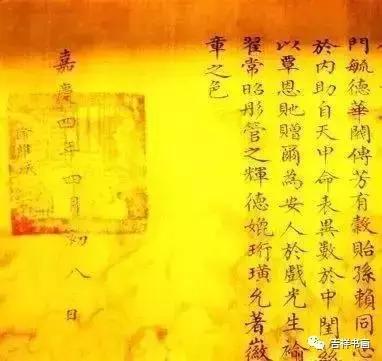 門毓德華閥傳芳有穀貽孫賴同心
於內助自天申命表異數於中閨茲
以覃恩貤贈爾為安人於戲光生褕
翟常昭彤管之輝德媲珩璜允著徽
章之色
嘉慶四年四月初八日
吉祥书